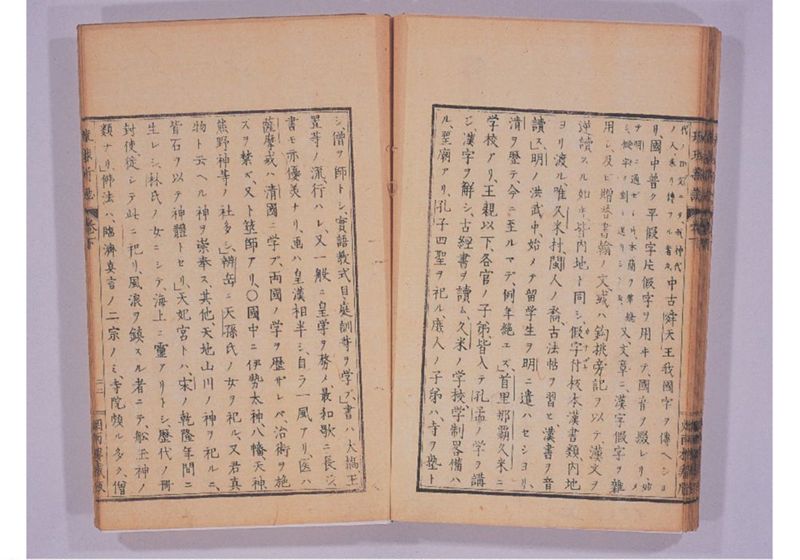 中古舜天王我國字ヲ傳ヘシヨ
リ、國中普ク平假字片假字ヲ用ヰテ、國音ヲ綴レリ、
又文章ニ、漢字假字ヲ雜
用シ、及ヒ贈答書翰ノ文或ハ鈎挑旁記ヲ以テ漢文ヲ
逆讀スル如キ、皆内地ト同シ、假字付板本漢書類内地
ヨリ渡ル唯久米村、閩人ノ裔、古法帖ヲ習ヒ漢書ヲ音
讀ス、明ノ洪武中、始メテ留學生ヲ明ニ遣ハセシヨリ、
清ヲ歷テ、今ニ至ルマデ、例年絶エズ、首里那覇久米ニ
学校アリ、王親以下、各官ノ子弟、皆入テ、孔孟ノ学ヲ講
ジ、漢字ヲ解シ、古經書ヲ讀ム、久米ノ学校、学制畧備ハ
ル、聖廟アリ、孔子四聖ヲ祀ル、庶人ノ子弟ハ、寺ヲ塾ト
シ、僧ヲ師トシ、實語教式目庭訓等ヲ学フ、書ハ大橋、玉
置等ノ流行ハレ、又一般ニ皇学ヲ務メ、最和歌ニ長シ、
書モ亦優美ナリ、画ハ皇漢相半シ、自ラ一風アリ、医ハ
薩摩或ハ清國ニ学ブ、両國ノ学ヲ歷ザレバ、治術ヲ施
スヲ禁ズ、又卜筮師アリ、〇國中ニ伊勢太神八幡天神
熊野神等ノ社多シ、辨岳ニ天孫氏ノ女ヲ祀ル、又君真
物ト云ヘル神ヲ崇奉ス、其他天地山川ノ神ヲ祀ルニ、
皆石ヲ以テ神體トセリ、天妃宮トハ、宋ノ乾隆年間ニ
生レシ、林氏ノ女ニシテ、海上ニ靈アリトシ、歷代ノ冊
封使從シテ此ニ祀リ、風浪ヲ鎮スル者ニテ、舩玉神ノ
類ナリ、佛法ハ、臨濟真言ノ二宗ノミ、寺院頗ル多ク、僧